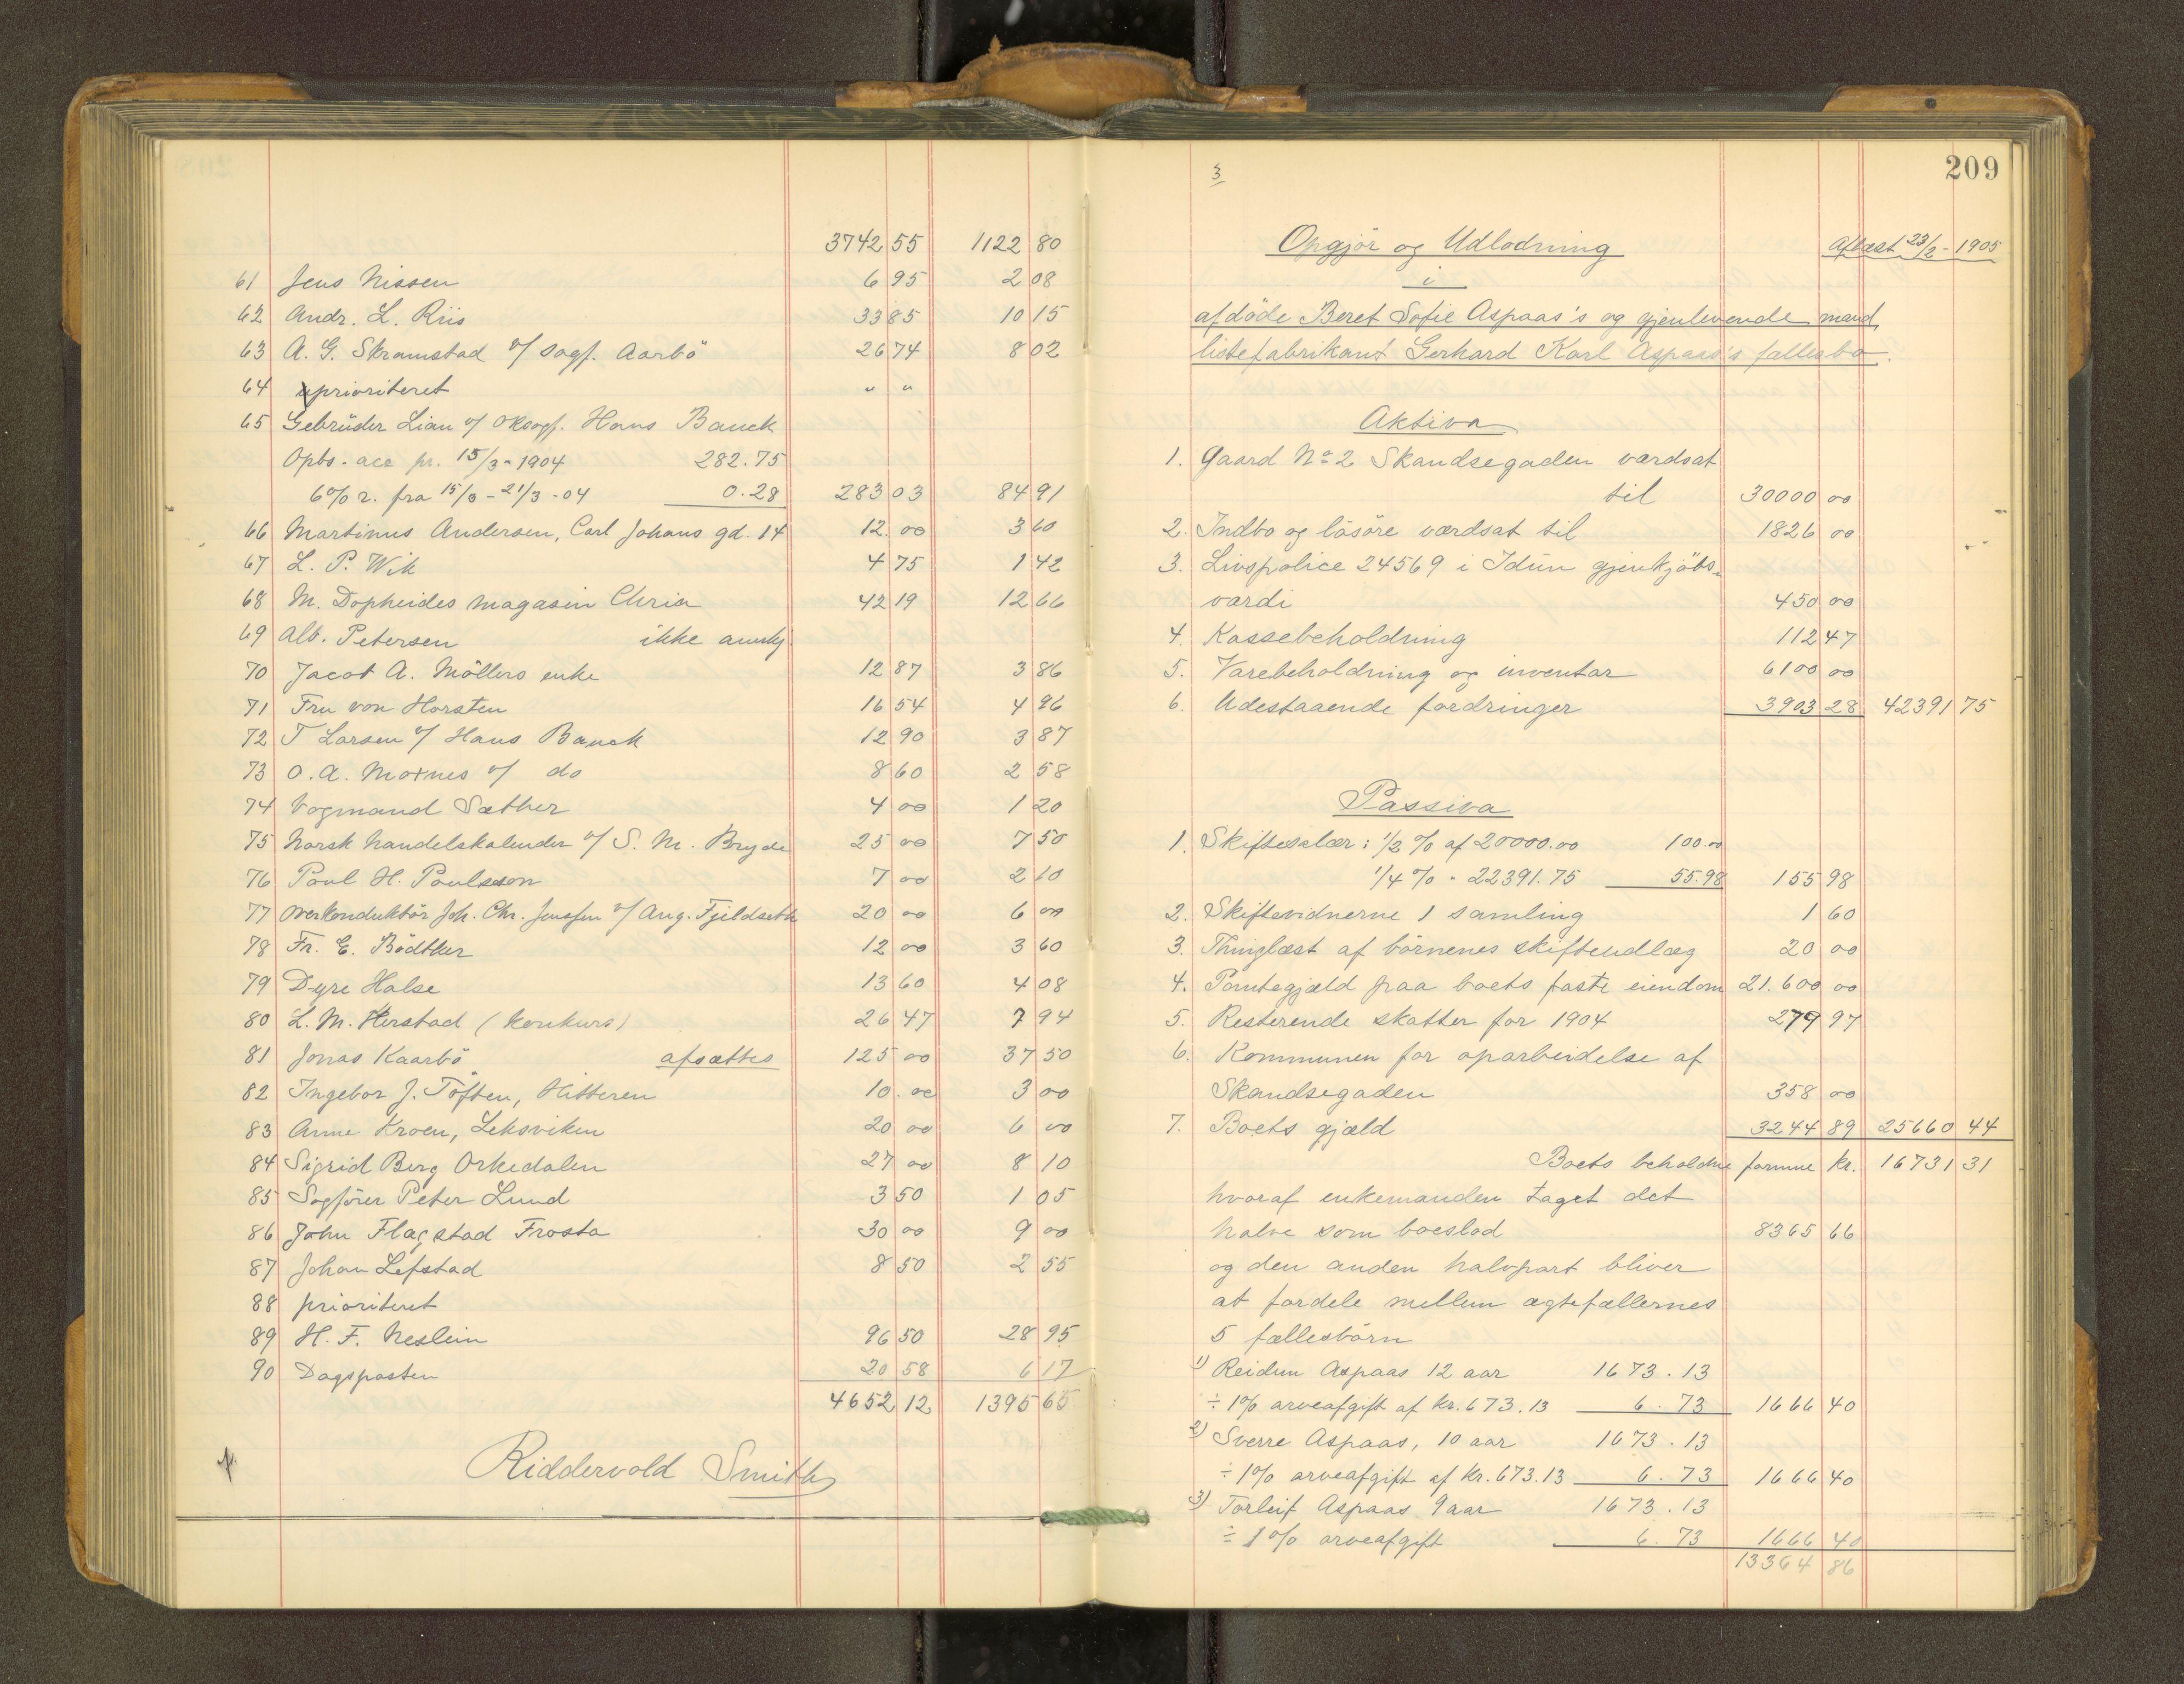 3742 55 1122 80
61 Jens Nissen 6 95 2 08
62 Andr. L. Riis 33 85 10 15
63 A. G. Skramstad v/ sagf. Aarbö 26 74 8 02
64 prioriteret " "
65 Gebrüder Lian v/ oRsagf. Hans Bauck
Opbs. acc pr. 15/3-1904 282.75
6% r. fra 15/3-21/3-04 0.28 283 03 84 91
66 Martinus Andersen, Carl Johans gd. 14 12.00 3 60
67 L. P. Wik 4 75 1 42
68 M. Dopheides magasin Chria 42 19 12 66
69 Alb. Petersen ikke
70 Jacob A. Möllers enke 12 87 3 86
71 Fru von Horsten 16 54 4 96
72 T Larsen v/ Hans Bauck 12 90 3 87
73 O. A. Moxnes v/ do 8 60 2 58
74 Vogmand Sæther 4 00 1 20
75 Norsk handelskalender v/ S. M. Bryde 25 00 7 50
76 Paul H. Paulsson 7 00 2 10
77 Overkonduktör Joh. Chr. Jenssen v/ Aug. Fjeldseth 20 00 6 00
78 Fr. E. Bödtker 12 00 3 60
79 Dyre Halse 13 60 4 08
80 L. M. Herstad (konkurs) 26 47 7 94
81 Jonas Kaarbö afsættes 125 00 37 50
82 Ingebor J. Töften, Hitteren 10.00 3 00
83 Anne Kroen, Leksviken 20 00 6 00
84 Sigrid Berg Orkedalen 27 00 8 10
85 Sagförer Peter Lund 3 50 1 05
86 John Flagstad Frosta 30 00 9 00
87 Johan Lefstad 8 50 2 55
88 prioriteret
89 H. F. Neslein 96 50 28 95
90 Dagsposten 20 58 6 17
4652 12 1395 65
Riddervold Smith
3
209
Opgjör og Udlodning Aflæst 23/2-1905
i
afdöde Beret Sofie Aspaas's og gjenlevende mand,
listefabrikant Gerhard Karl Aspaas's fællesbo.
Aktiva
1. Gaard No 2 Skandsegaden værdsat
til 30000 00
2. Indbo og lösöre værdsat til 1826 00
3. Livspolice 24569 i Idun gjenkjöbs-
værdi 450 00
4. Kassebeholdning 112 47
5. Varebeholdning og inventar 6100 00
6. Udestaaende fordringer 3903 28 42391 75
Passiva
1. Skiftesalær: 1/2 % af 20000.00 100.00
1/4 % " 22391.75 55.98 155 98
2. Skiftevidnerne 1 samling 1 60
3. Thinglæst af börnenes skifteudlæg 20 00
4. Pantegjæld paa boets faste eiendom 21.600 00
5. Resterende skatter for 1904 279 97
6. Kommunen for oparbeidelse af
Skandsegaden 358 00
7. Boets gjæld 3244 89 25660 44
Boets beholdne formue kr. 16731 31
hvoraf enkemanden taget det
halve som boeslod 8365 66
og den anden halvpart bliver
at fordele mellem ægtefællernes
5 fællesbörn
1) Reidun Aspaas 12 aar 1673.13
÷ 1% arveafgift af kr. 673.13 6.73 1666 40
2) Sverre Aspaas, 10 aar 1673.13
÷ 1% arveafgift af kr. 673.13 6.73 1666 40
3) Torleif Aspaas 9 aar 1673.13
÷ 1% arveafgift 6.73 1666 40
13364 86